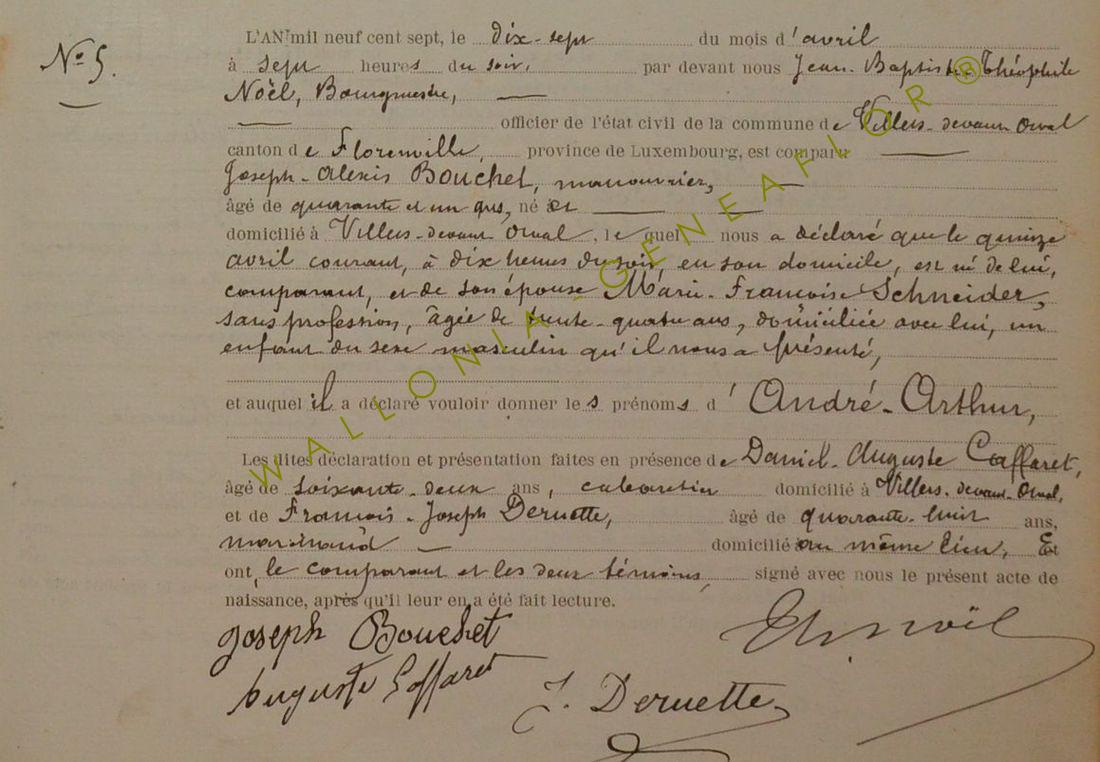 Nº 5.
L'AN mil neuf cent sept, le dix-sept du mois d'avril
à sept heures du soir, par devant nous Jean-Baptiste-Théophile
Noël, Bourgmestre,
officier de l'état civil de la commune de Villers-devant-Orval
canton de Florenville, province de Luxembourg, est comparu
Joseph-Alexis Bouchet, manouvrier,
âgé de quarante et un ans, né et
domicilié à Villers-devant-Orval, lequel nous a déclaré que le quinze
avril courant, à dix heures du soir, en son domicile, est né de lui,
comparant, et de son épouse Marie-Françoise Schneider,
sans profession, âgée de trente-quatre ans, domiciliée avec lui, un
enfant du sexe masculin qu'il nous a présenté,
et auquel il a déclaré vouloir donner les prénoms d'André-Arthur,
Les dites déclaration et présentation faites en présence de Daniel-Auguste Caffaret,
âgé de soixante-deux ans, cabaretier domicilié à Villers-devant-Orval,
et de François-Joseph Deruette, âgé de quarante-huit ans,
maréchaud domicilié au même lieu, Et
ont, le comparant et les deux témoins, signé avec nous le présent acte de
naissance, après qu'il leur en a été fait lecture.
Joseph Bouchet Th. Noël
Auguste Caffaret
J. Deruette
WALLONIA-GENEAFLOR®